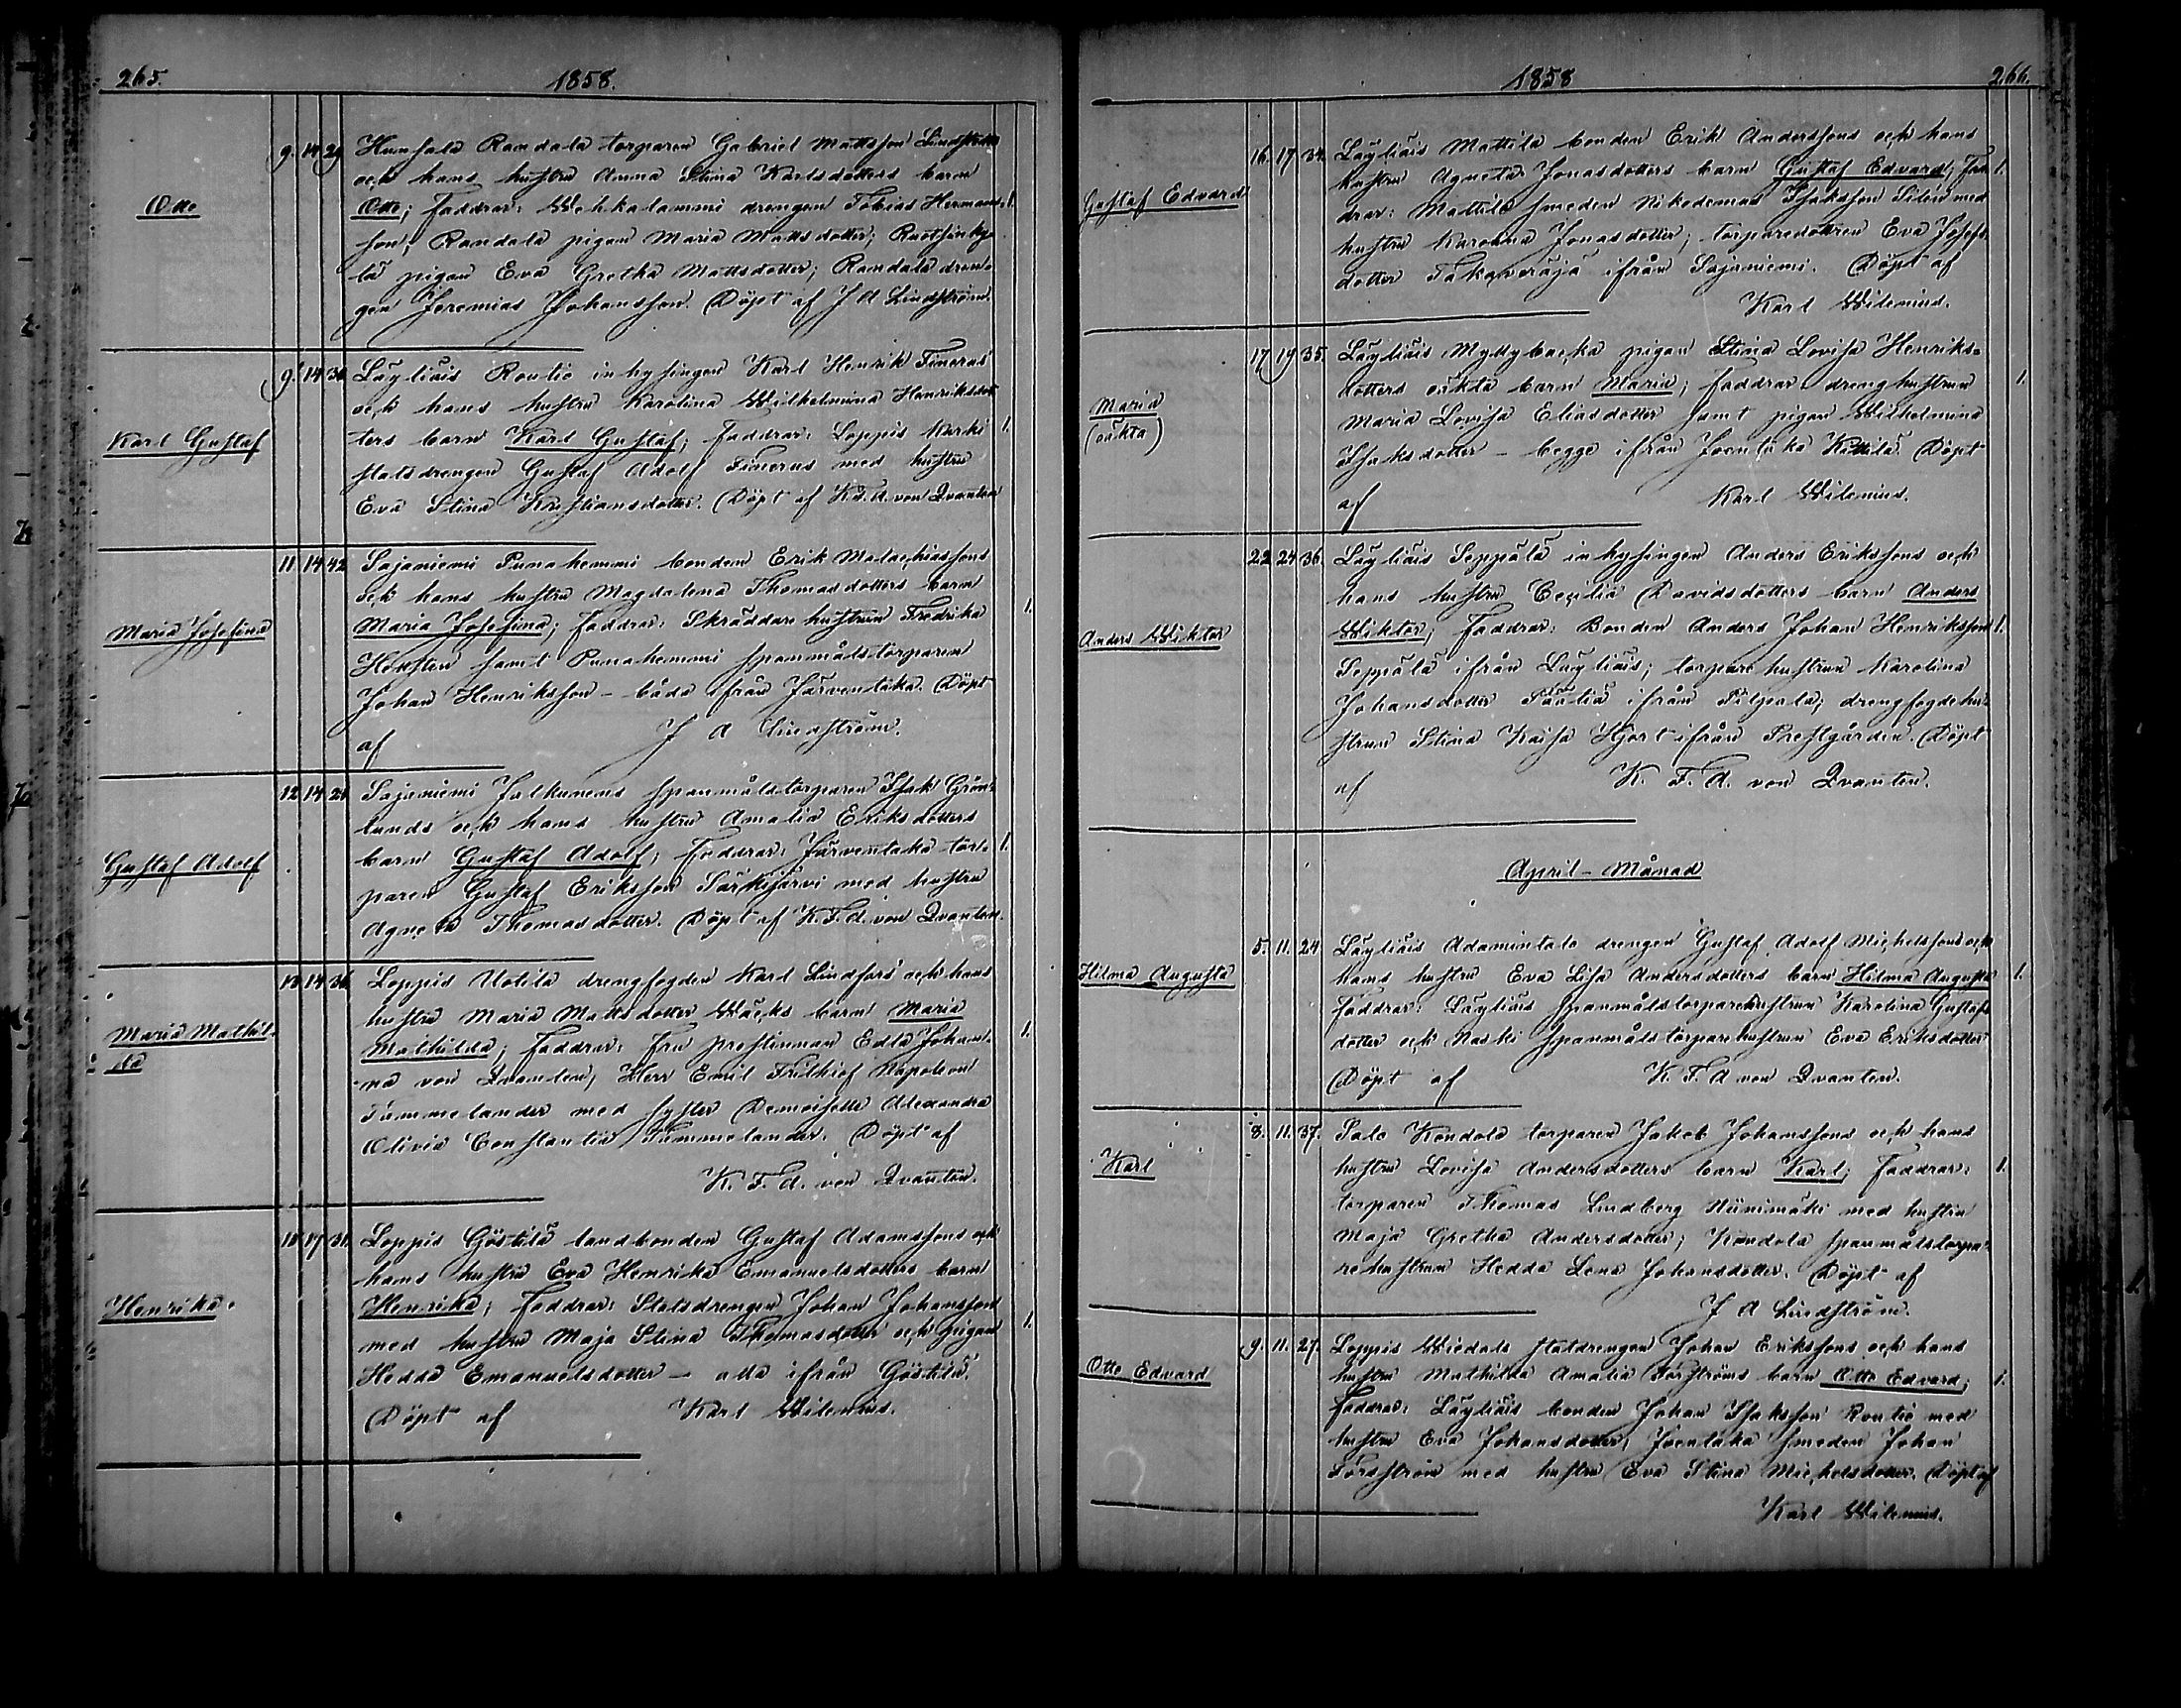 265.
1858.
Otto
9. 14 29 Hunsala Randala torparen Gabriel Mattsson
och hans hustru Anna Stina Karlsdotters barn
Otto; faddrar: Wehkalammi drengen Tobias Hermans- 1.
son; Randala pigan Maria Mattsdotter;
pigan Eva Gretha Mattsdotter; Randala dren-
gen Jeremias Johansson. Döpt af J A Lindström.
Karl Gustaf
9. 14 30 Läyliäis Routio inhysingen Karl Henrik Finerus
och hans hustru Karolina Wilhelmina Henriksdot
ters barn Karl Gustaf; faddrar: Loppis 1.
statsdrengen Gustaf Adolf Finerus med hustru
Eva Stina Kristiansdotter. Döpt af K.F.A. von Qvanten
Maria Josefina
11 14 42 Sajaniemi Punahemmi bonden Erik Malachiassons
och hans hustru Magdalena Thomasdotters barn
Maria Josefina; faddrar: Skräddare hustrun Fredrika 1.
samt Punahemmi spanmålstorparen
Johan Henriksson – båda ifrån Järventaka. Döpt
af J A Lindström.
Gustaf Adolf
12 14 24 Sajaniemi Jalkanens spanmålstorparen Isak Grön-
lunds och hans hustru Amalia Eriksdotters
barn Gustaf Adolf; faddrar: Järventaka tor- 1.
paren Gustaf Eriksson Särkijärvi med hustru
Agneta Thomasdotter. Döpt af K.F.A. von Qvanten.
Maria Mathil-
da
14 Loppis Uotila drengfogden Karl Lindfors och hans
hustru Maria Mattsdotter barn Maria
Mathilda; faddrar: Fru prostinnan Edla Johan- 1.
na von Qvanten, Herr Emil Frithiof Napoleon
Tammelander med syster Demoiselle Alexandra
Olivia Constantia Tammelander. Döpt af
K. F. A. von Qvanten.
Henrika.
17 31. Loppis Göstilä landbonden Gustaf Adamssons och
hans hustru Eva Henrika Emanuelsdotters barn
Henrika; faddrar: Statsdrengen Johan Johansson 1.
med hustru Maja Stina Thomasdotter och pigan
Hedda Emanuelsdotter – alla ifrån Göstilä.
Döpt af Karl Wilenius.
1858
266.
Gustaf Edvard
16. 17 34. Läyliäis Mattila bonden Erik Anderssons och hans
hustru Agneta Jonasdotters barn Gustaf Edvard; fad- 1.
drar: Mattila smeden Nikodemus Isaksson Silén med
hustru Karoana Jonasdotter; torparedottren Eva Josefs-
dotter ifrån Sajaniemi. Döpt af
Karl Wilenius.
Maria
(oäkta)
17 19 35. Läyliäis Myllybacka pigan Stina Lovisa Henriks-
dotters oäkta barn Maria; faddrar: drenghustrun 1.
Maria Lovisa Eliasdotter samt pigan Wilhelmina
Isaksdotter – begge ifrån Joentaka Kättilä. Döpt
af Karl Wilenius.
Anders Wiktor
22 24 36. Läyliäis Seppälä inhysingen Anders Erikssons och
hans hustru Cecilia Davidsdotters barn Anders
Wiktor; faddrar: Bonden Anders Johan Henriksson 1.
Seppälä ifrån Läyliäis; torpare hustrun Karolina
Johansdotter ifrån Pilpala; drengfogde hu-
strun Stina Kaisa Hjort ifrån Prestgården. Döpt
af K. F. A. von Qvanten.
April – Månad
Hilma Augusta
5. 11. 24 Läyliäis Adamintalo drengen Gustaf Adolf Michelssons och
hans hustru Eva Lisa Andersdotters barn Hilma Augusta 1.
faddrar: Läyliäis spanmålstorparehustrun Karolina Gustafs-
dotter och Naski spanmålstorparehustrun Eva Eriksdotter
Döpt af K. F. A von Qvanten.
Karl
8. 11. 37. Salo Kondola torparen Jakob Johanssons och hans
hustru Lovisa Andersdotters barn Karl; faddrar: 1.
torparen Thomas Lindberg Niinimäki med hustru
Maja Gretha Andersdotter; Kondola spanmålstorpa-
re hustrun Hedda Lena Johansdotter. Döpt af
J A Lindström.
Otto Edvard
9. 11. 27. Loppis Wiedals statdrengen Johan Erikssons och hans
hustru Mathilda Amalia Forsströms barn Otto Edvard; 1.
faddrar: Läyliäis bonden Johan Isaksson Routio med
hustru Eva Johansdotter; Joentaka smeden Johan
Forsström med hustru Eva Stina Michelsdotter. Döpt af
Karl Wilenius.